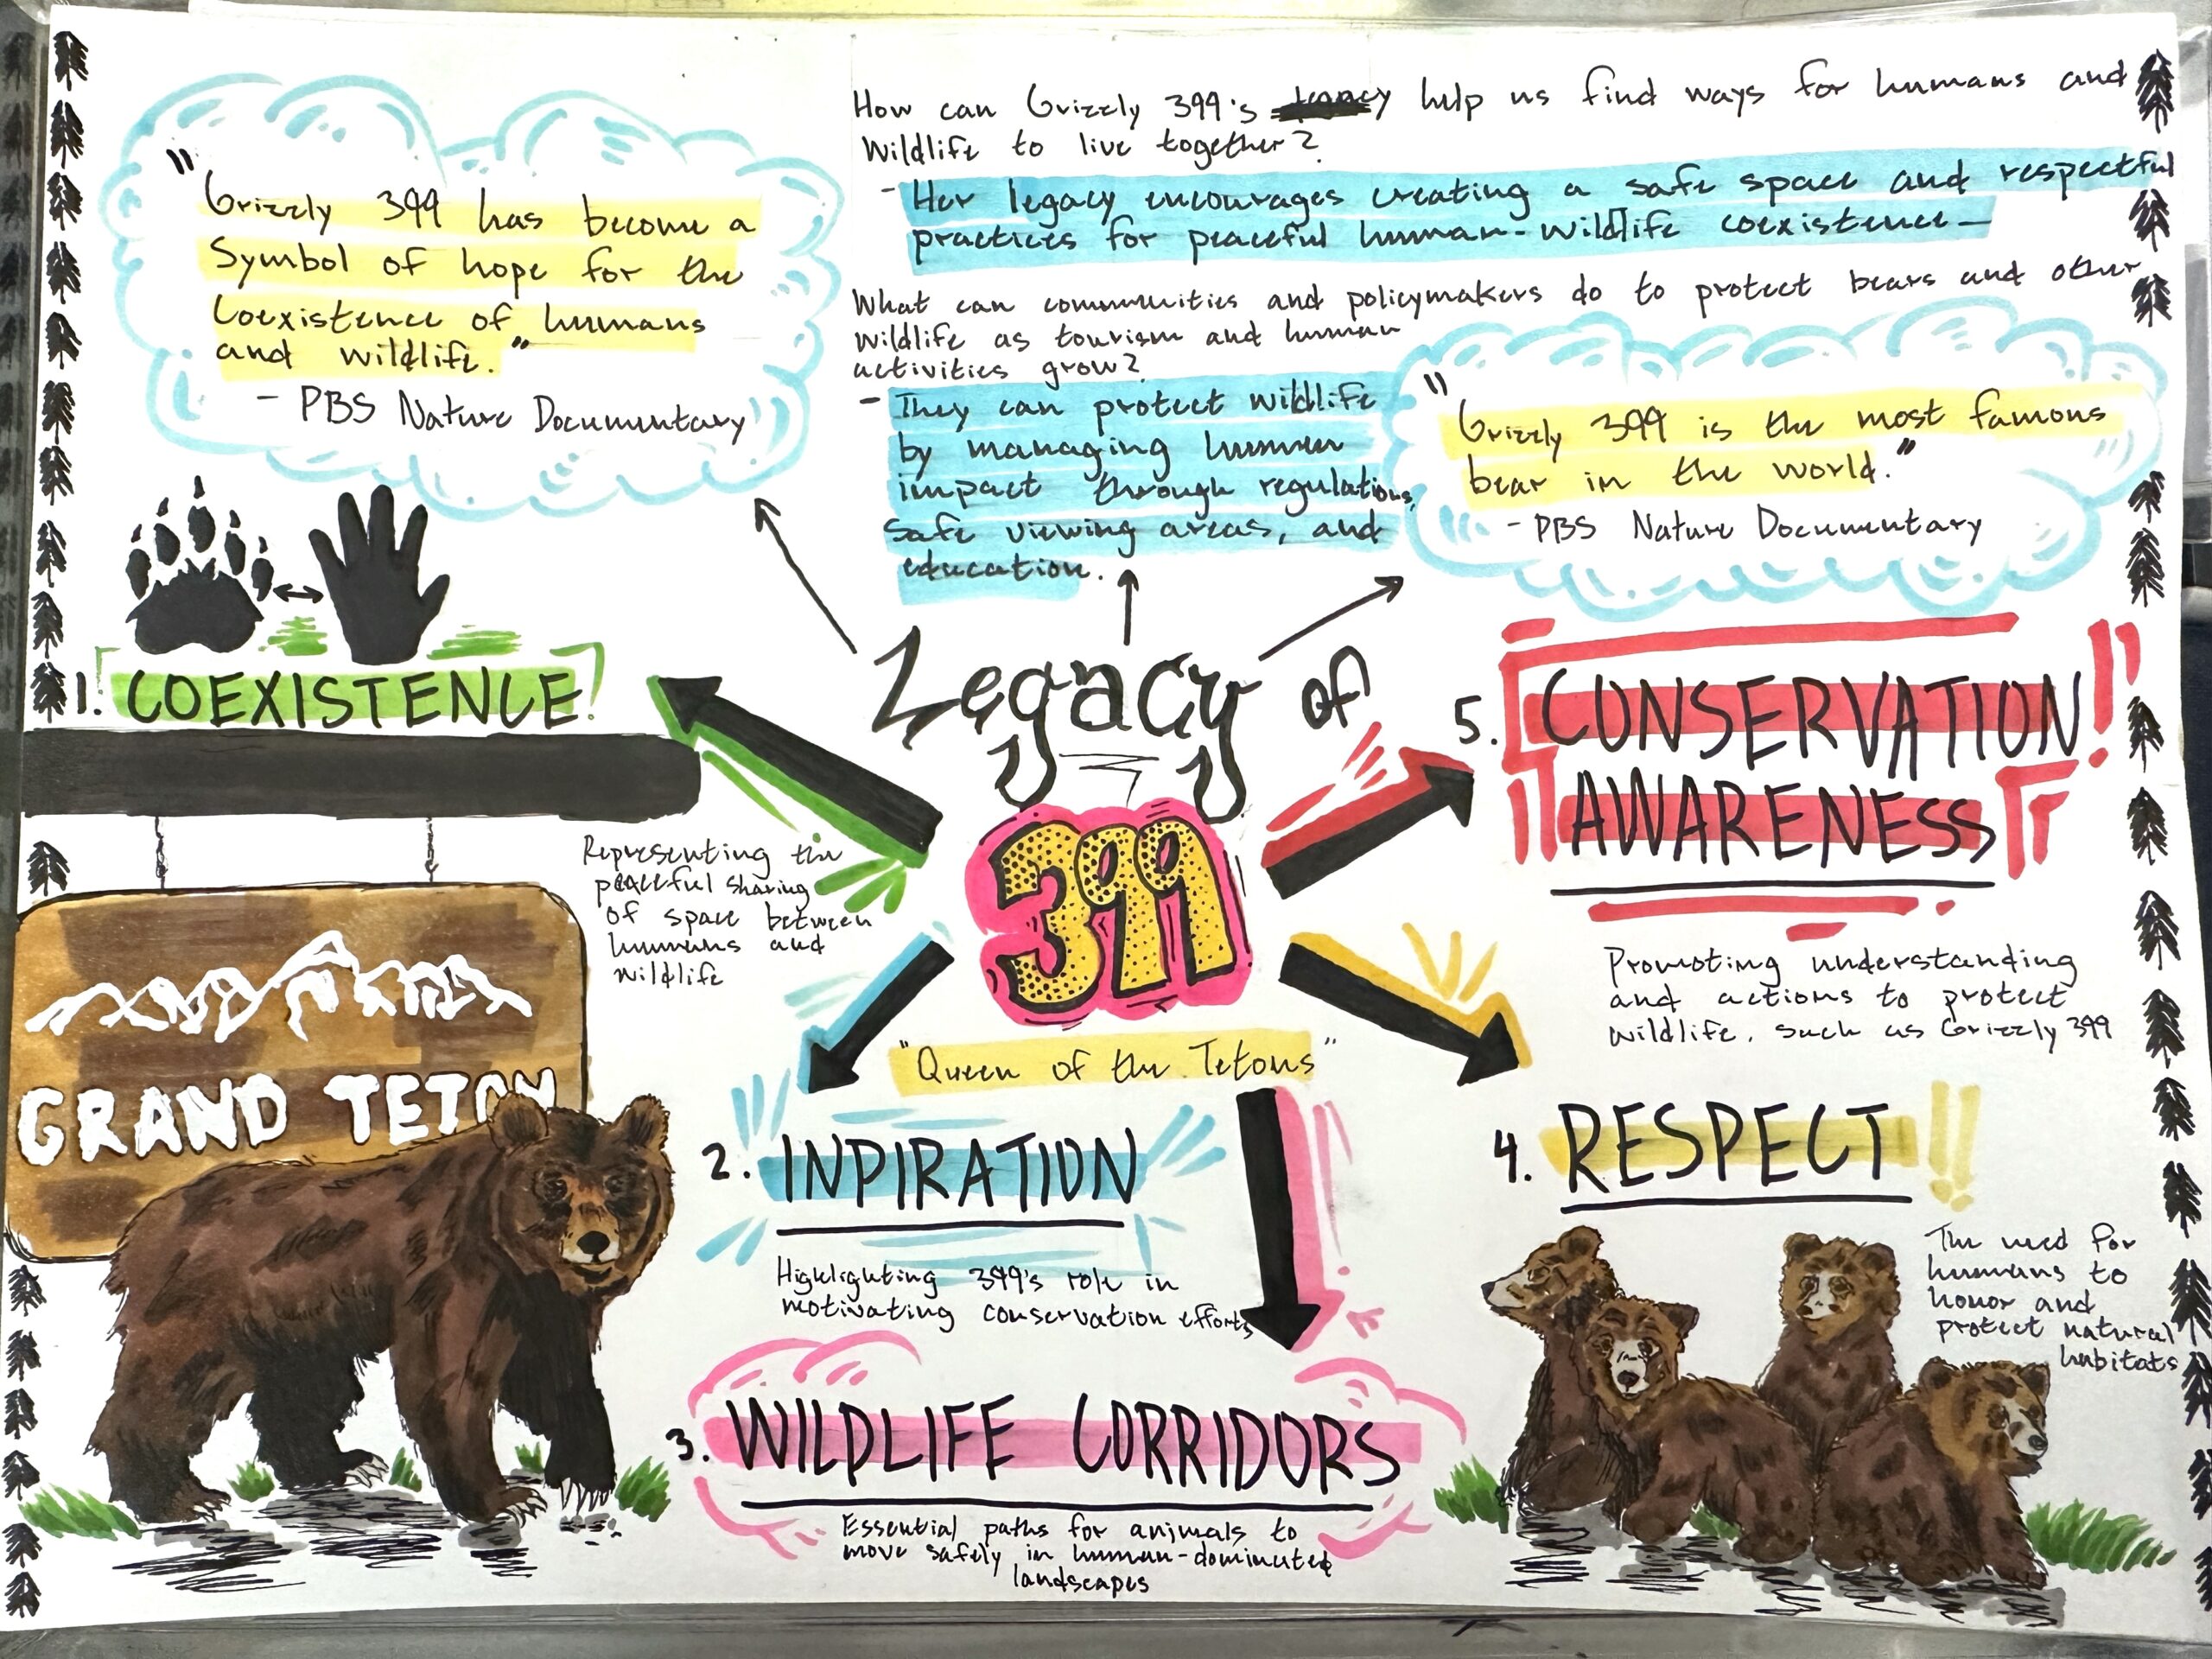 "Grizzly 399 has become a
Symbol of hope for the
Coexistence of humans
and wildlife."
- PBS Nature Documentary
How can Grizzly 399's help us find ways for humans and
Wildlife to live together?
- Her legacy encourages creating a safe space and respectful
practices for peaceful human-wildlife coexistence-
What can communities and policymakers do to protect bears and other
wildlife as tourism and human
activities grow?
- They can protect wildlife
by managing human
impact through regulations,
Safe viewing areas, and
education.
"Grizzly 399 is the most famous
bear in the world."
- PBS Nature Documentary
Legacy of
399
"Queen of the Tetons"
1. COEXISTENCE
Representing the
peaceful sharing
of space between
humans and
wildlife
GRAND TETON
2. INPIRATION
Highlighting 399's role in
motivating conservation efforts
3. WILDLIFE CORRIDORS
Essential paths for animals to
move safely in human-dominated
landscapes
4. RESPECT!!
The need for
humans to
honor and
protect natural
habitats
5. CONSERVATION!!
AWARENESS
Promoting understanding
and actions to protect
wildlife, such as Grizzly 399